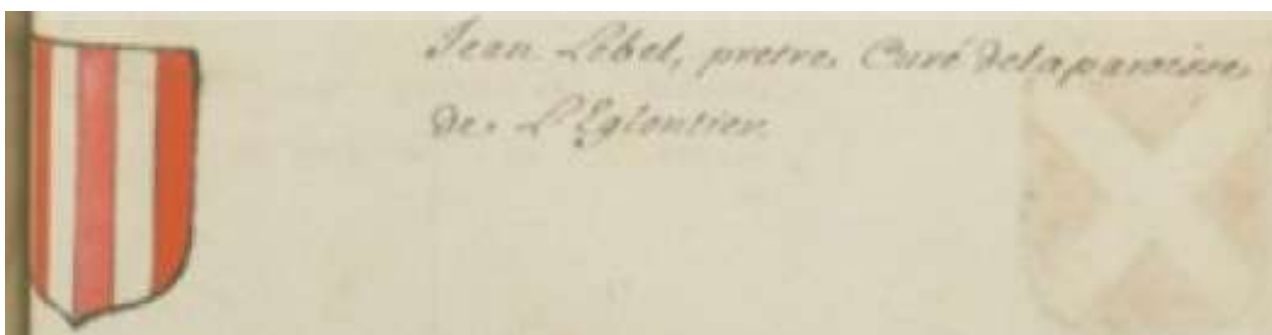 Jean Lebel, pretre, Curé de la paroisse,
de, L'Eglentier